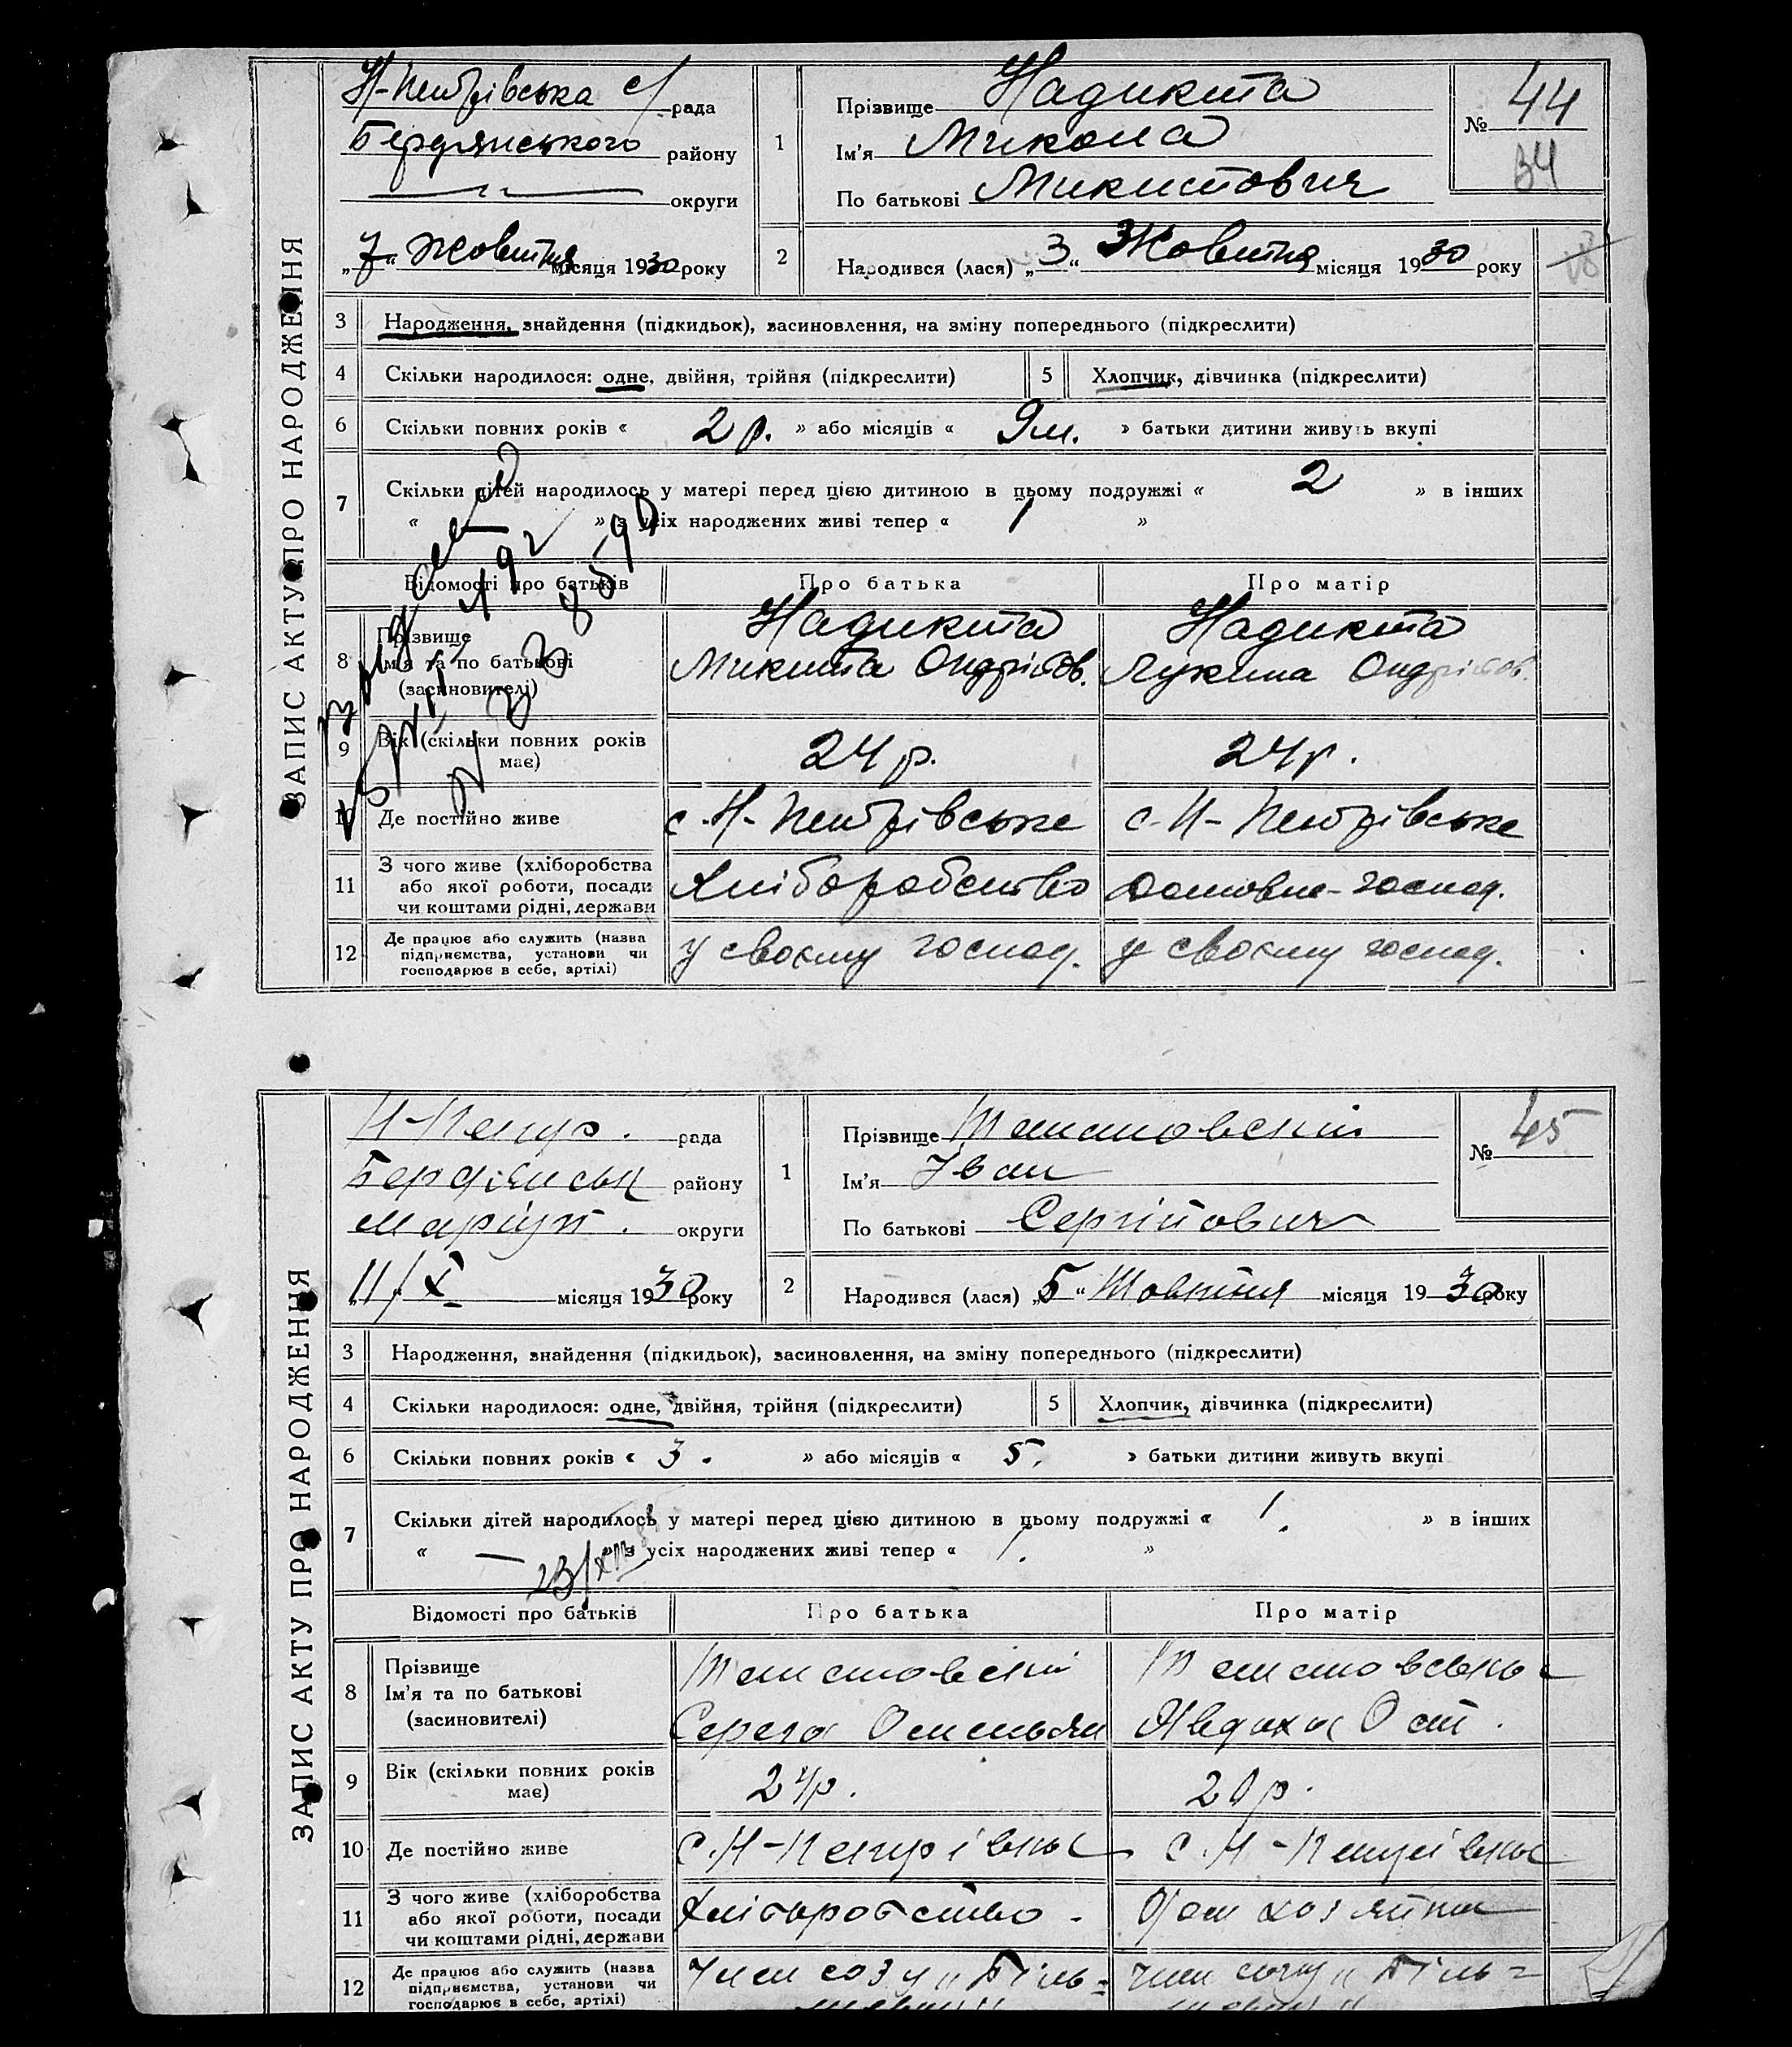 ЗАПИС АКТУ ПРО НАРОДЖЕННЯ
Н-Петрівська с/ рада
Бердянського району
—〃— округи
„7“ Жовтня місяця 1930 року
1
Прізвище Надикта
Ім'я Микола
По батькові Микитович
№ 44
34
2
Народився (лася) „3“ Жовтня місяця 1930 року
3 Народження, знайдення (підкидьок), засиновлення, на зміну попереднього (підкреслити)
4 Скільки народилося: одне, двійня, трійня (підкреслити) 5 Хлопчик, дівчинка (підкреслити)
6 Скільки повних років « 2 р. » або місяців « 9 м. » батьки дитини живуть вкупі
7 Скільки дітей народилось у матері перед цією дитиною в цьому подружжі « 2 » в інших
« » з усіх народжених живі тепер « 1 »
Відомості про батьків Про батька Про матір
8 Прізвище Надикта Надикта
Ім'я та по батькові Микита Ондрійов. Лукина Ондрійов.
(засиновителі)
9 Вік (скільки повних років має) 24 р. 24 р.
10 Де постійно живе с. Н-Петрівське с. Н-Петрівське
11 З чого живе (хліборобства або якої роботи, посади чи коштами рідні, держави Хліборобство домовне-господ.
12 Де працює або служить (назва підприємства, установи чи господарює в себе, артілі) у своєму господ. у своєму господ.
ЗАПИС АКТУ ПРО НАРОДЖЕННЯ
Н-Петр. рада
Бердянськ району
Маріуп. округи
„11“ X місяця 1930 року
1
Прізвище
Ім'я Іван
По батькові Сергійович
№ 45
2
Народився (лася) „5“ Жовтня місяця 1930 року
3 Народження, знайдення (підкидьок), засиновлення, на зміну попереднього (підкреслити)
4 Скільки народилося: одне, двійня, трійня (підкреслити) 5 Хлопчик, дівчинка (підкреслити)
6 Скільки повних років « 3. » або місяців « 5. » батьки дитини живуть вкупі
7 Скільки дітей народилось у матері перед цією дитиною в цьому подружжі « 1. » в інших
« — » з усіх народжених живі тепер « 1. »
Відомості про батьків Про батька Про матір
8 Прізвище
Ім'я та по батькові Омельян Явдоха Ост.
(засиновителі)
9 Вік (скільки повних років має) 24 р. 20 р.
10 Де постійно живе с. Н-Петрівка с. Н-Петрівка
11 З чого живе (хліборобства або якої роботи, посади чи коштами рідні, держави Хліборобство. Дом хозяйка
12 Де працює або служить (назва підприємства, установи чи господарює в себе, артілі)